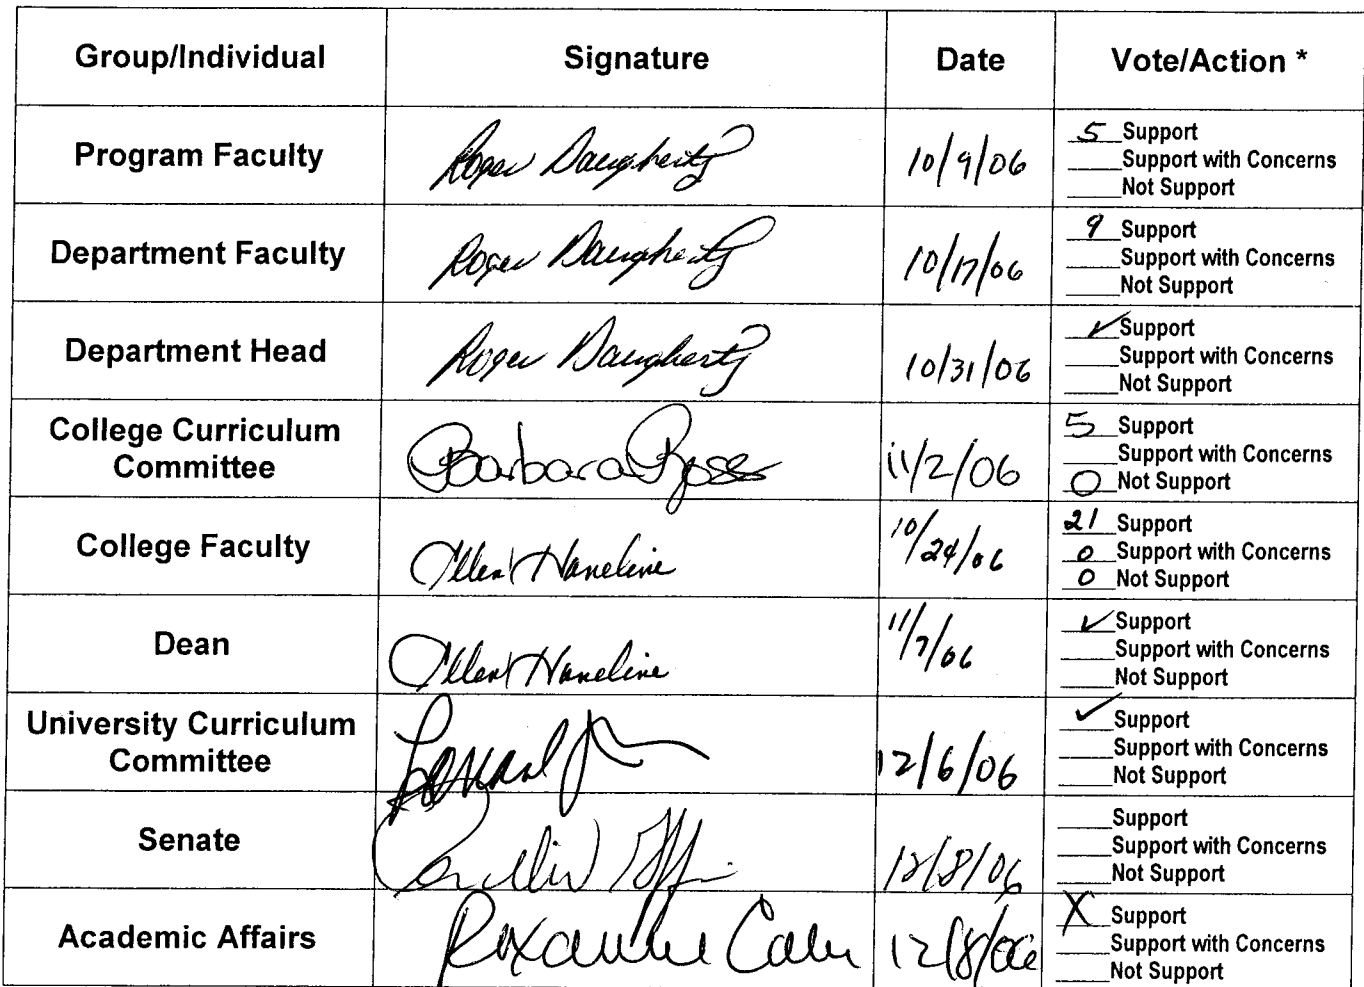 Group/Individual Signature Date Vote/Action *
Program Faculty Roger Daugherty 10/9/06 5 Support
Support with Concerns
Not Support
Department Faculty Roger Daugherty 10/17/06 9 Support
Support with Concerns
Not Support
Department Head Roger Daugherty 10/31/06 ✓ Support
Support with Concerns
Not Support
College Curriculum
Committee Barbara Ross 11/2/06 5 Support
Support with Concerns
0 Not Support
College Faculty Haneline 10/24/06 21 Support
0 Support with Concerns
0 Not Support
Dean Haneline 11/7/06 ✓ Support
Support with Concerns
Not Support
University Curriculum
Committee Leonard 12/6/06 ✓ Support
Support with Concerns
Not Support
Senate 12/8/06 Support
Support with Concerns
Not Support
Academic Affairs Roxanne 12/8/06 X Support
Support with Concerns
Not Support